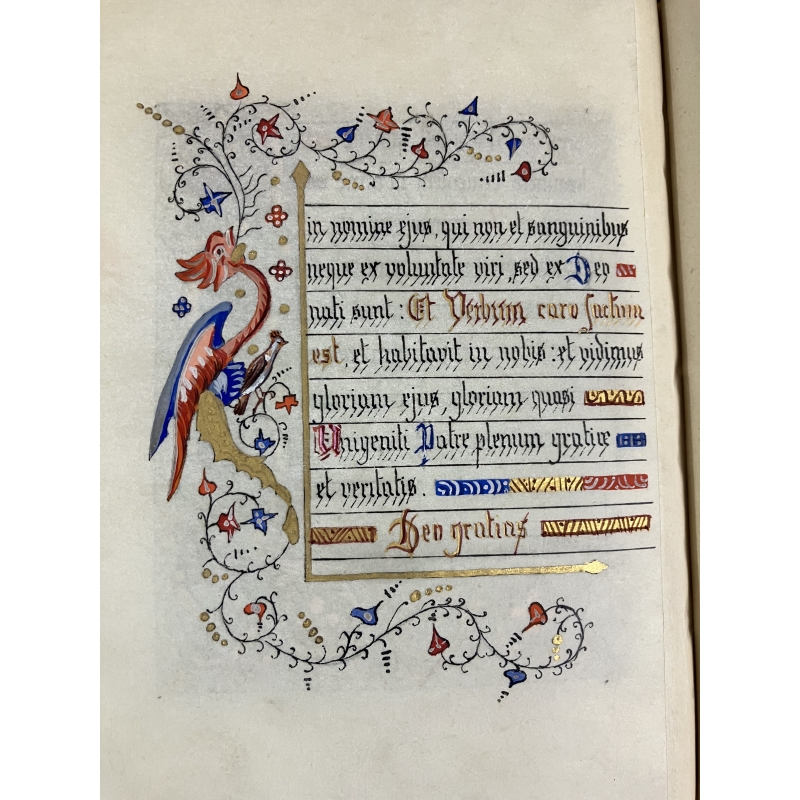 in nomine ejus, qui non ex sanguinibus
neque ex voluntate viri, sed ex Deo
nati sunt : Et Verbum caro factum
est, et habitavit in nobis : et vidimus
gloriam ejus, gloriam quasi
Unigeniti Patre plenum gratiæ
et veritatis.
Deo gratias